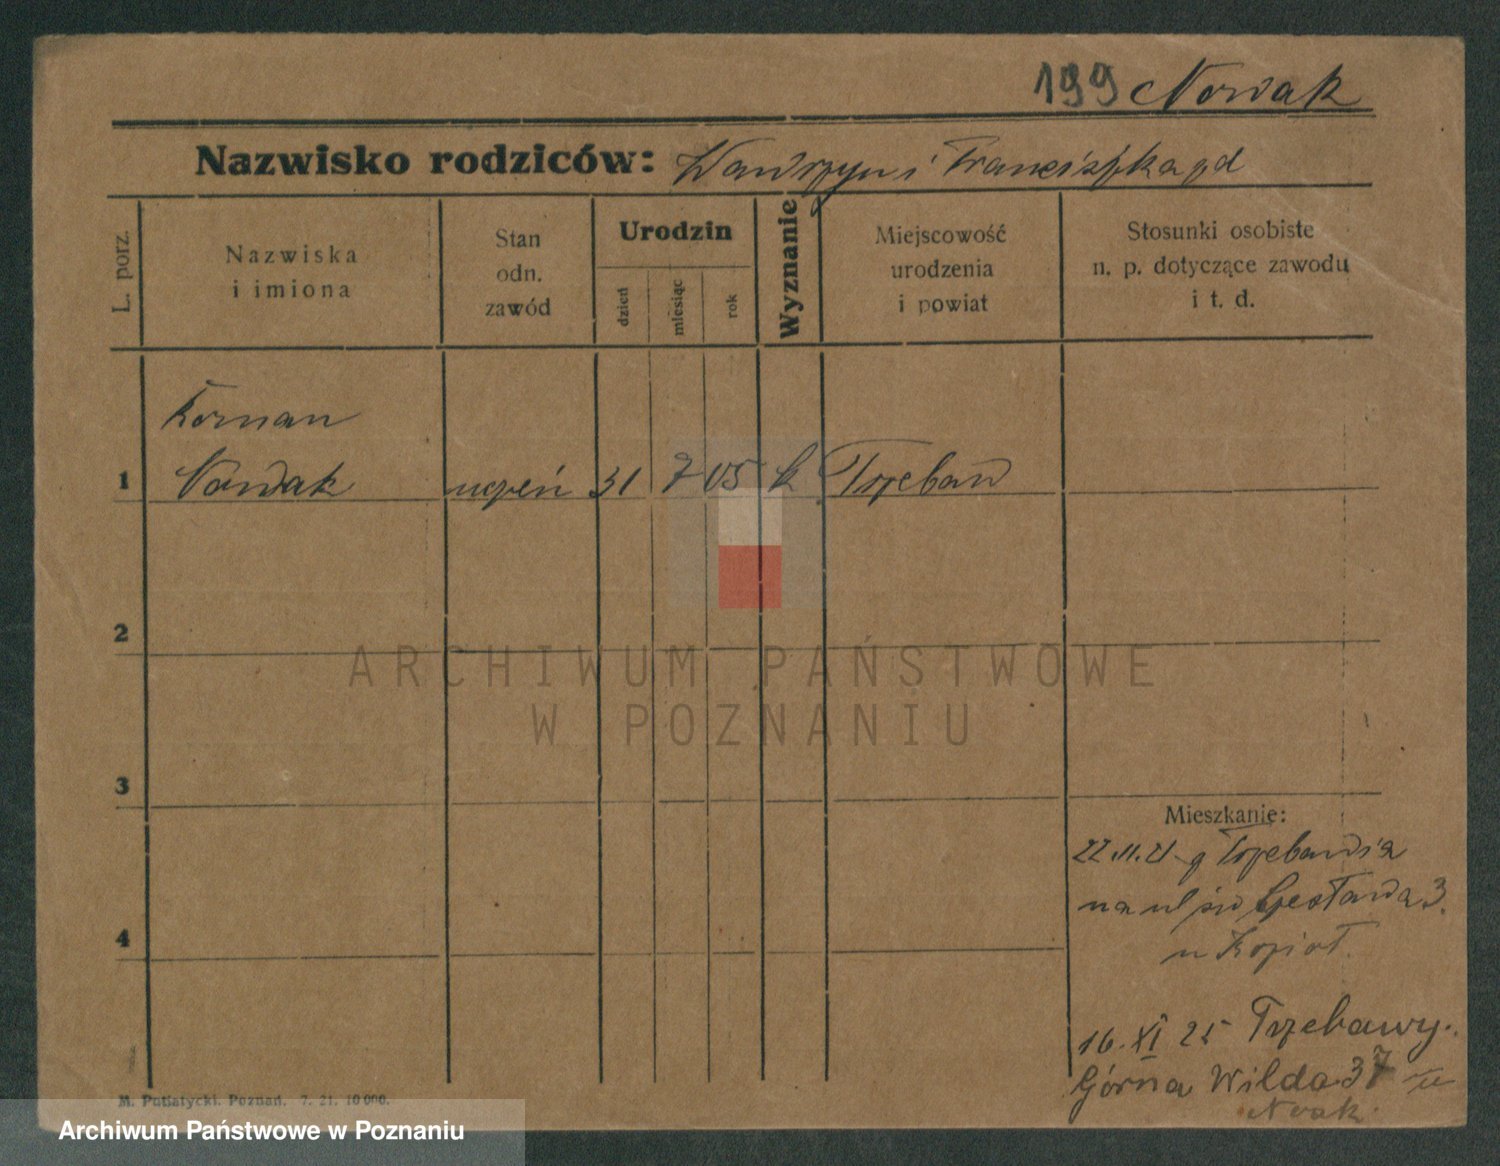 199 Nowak
Nazwisko rodziców: Wawrzyn i Franciszka
L. porz.
Nazwiska
i imiona
Stan
odn.
zawód
Urodzin
dzień
miesiąc
rok
Wyznanie
Miejscowość
urodzenia
i powiat
Stosunki osobiste
n. p. dotyczące zawodu
i t. d.
Roman
1 Nowak uczeń 31 7 05 k Trzebaw
2
ARCHIWUM PAŃSTWOWE
W POZNANIU
3
Mieszkanie:
22.11.21 z
na ul 3.
4
u
16. XI 25
Górna Wilda 37 u
Nowak
M. Putiatycki. Poznań. 7. 21. 10 000.
Archiwum Państwowe w Poznaniu